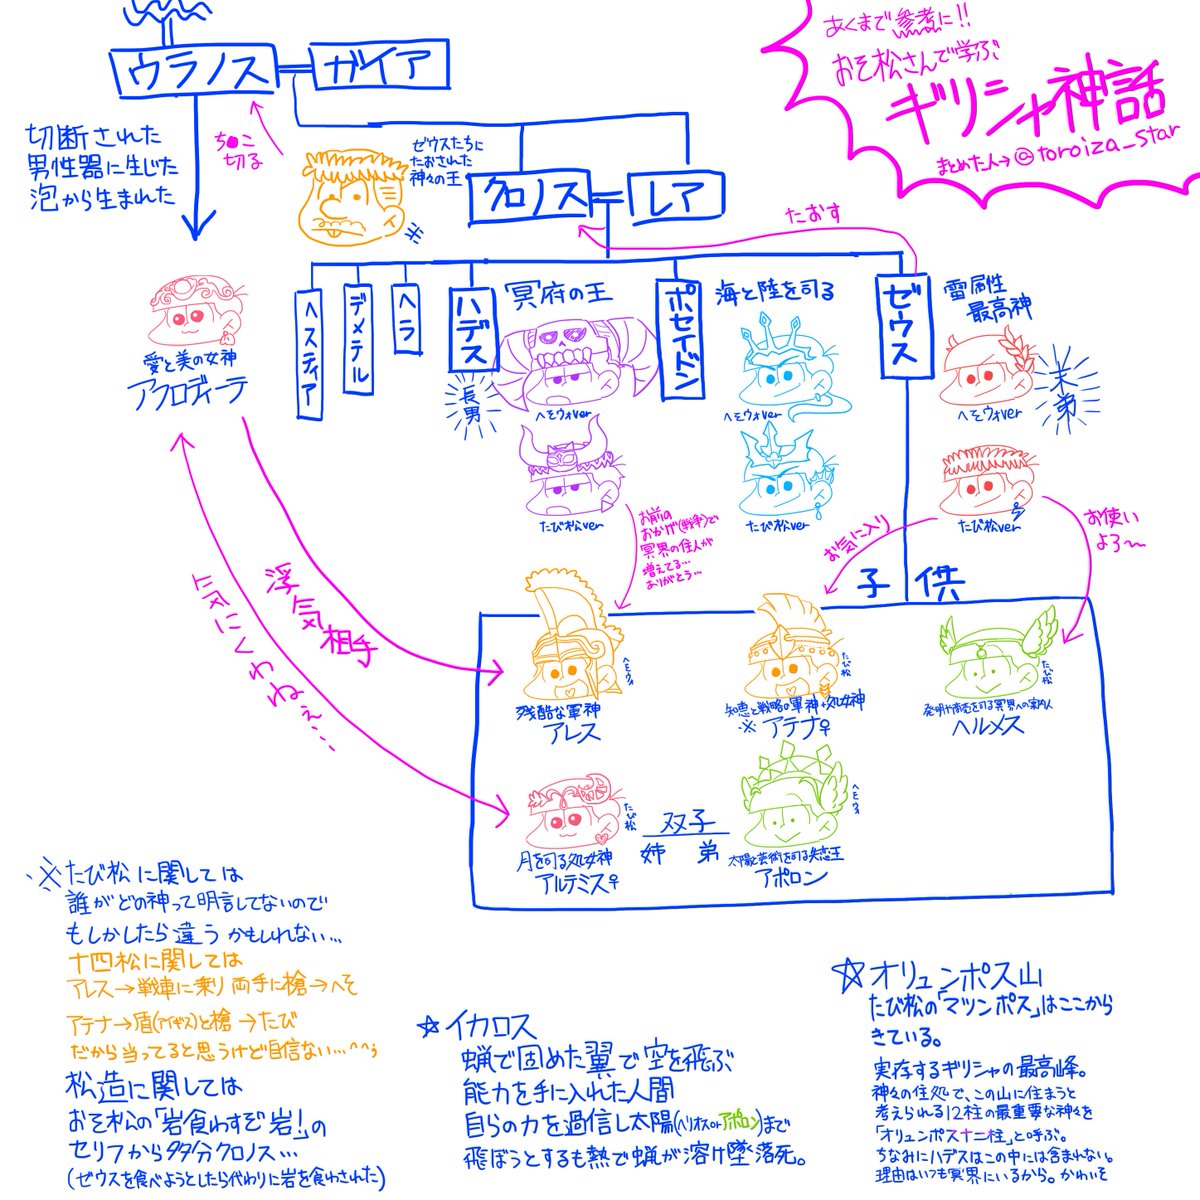 あくまで参考に!!
おそ松さんで学ぶ
ギリシャ神話
まとめた人→@toroiza_star
ウラノス
ガイア
切断された
男性器に生じた
泡から生まれた
ち●こ
切る
ゼウスたちに
たおされた
神々の王
※
クロノス
レア
たおす
ヘスティア
デメテル
ヘラ
ハデス
長男
冥府の王
へそウォver
たび松ver
ポセイドン
海と陸を司る
へそウォver
たび松ver
ゼウス
雷属性
最高神
へそウォver
末弟
たび松ver
愛と美の女神
アフロディーテ
浮気相手
気にくわねぇ…
お前の
おかげ(戦争)で
冥界の住人が
増えてる…
ありがとう…
お気に入り
お使い
よろ〜
子供
へそウォ
残酷な軍神
アレス
たび松
知恵と戦略の軍神+処女神
※アテナ♀
たび松
発明や商売を司る冥界への案内人
ヘルメス
たび松
月を司る処女神
アルテミス♀
双子
姉 弟
へそウォ
太陽と芸術を司る失恋王
アポロン
※たび松に関しては
誰がどの神って明言してないので
もしかしたら違うかもしれない…
十四松に関しては
アレス→戦車に乗り両手に槍→へそ
アテナ→盾(アイギス)と槍→たび
だから当ってると思うけど自信ない…^^;
松造に関しては
おそ松の「岩食わすぞ岩!」の
セリフから多分クロノス…
(ゼウスを食べようとしたら代わりに岩を食わされた)
☆イカロス
蝋で固めた翼で空を飛ぶ
能力を手に入れた人間
自らの力を過信し太陽(ヘリオスorアポロン)まで
飛ぼうとするも熱で蝋が溶け墜落死。
☆オリュンポス山
たび松の「マツンポス」はここから
きている。
実存するギリシャの最高峰。
神々の住処で、この山に住まうと
考えられる12柱の最重要な神々を
「オリュンポス十二柱」と呼ぶ。
ちなみにハデスはこの中には含まれない。
理由はいつも冥界にいるから。かわいそ